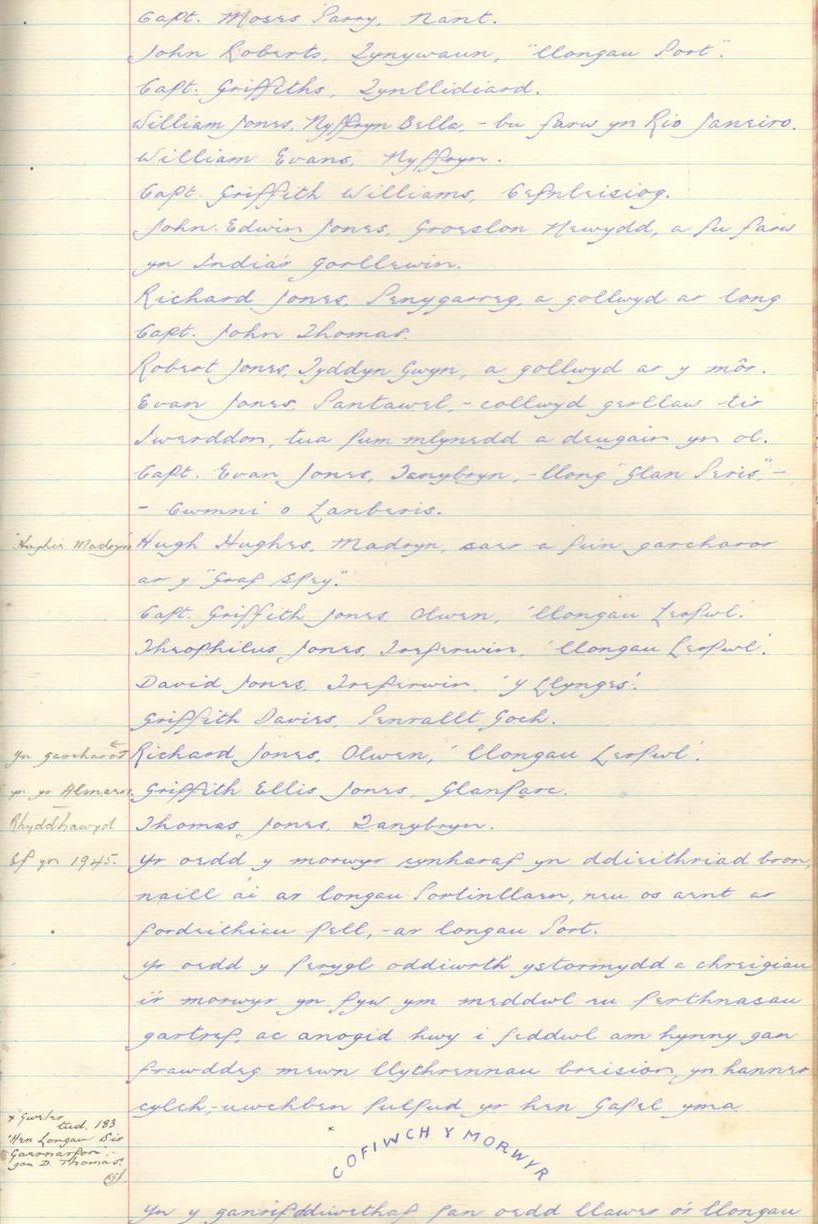 Capt. Moses Parry, Nant.
John Roberts, Tynywaun, "llongau Port".
Capt. Griffiths, Tynllidiard.
William Jones, Nyffryn Bella, - bu farw yn Rio Janeiro.
William Evans, Nyffryn.
Capt. Griffith Williams, Cefnleisiog.
John Edwin Jones, Groeslon Newydd, a fu farw
yn India'r Gorllewin.
Richard Jones, Penygarreg, a gollwyd ar long
Capt. John Thomas.
Robert Jones, Tyddyn Gwyn, a gollwyd ar y môr.
Evan Jones, Pantawel, - collwyd gerllaw tir
Iwerddon, tua pum mlynedd a deugain yn ol.
Capt. Evan Jones, Tanybryn, - llong "Glan Peris", -
- Cwmni o Lanberis.
'Huphir Madryn' Hugh Hughes, Madryn, saer a fu'n garcharor
ar y "Graf Spey".
Capt. Griffith Jones Olwen, 'llongau Lerpwl'.
Theophilus Jones, Treferwin, 'llongau Lerpwl'.
David Jones, Treferwin, 'Y Llynges'.
Griffith Davies, Penrallt Goch.
Yn garcharor Richard Jones, Olwen, 'llongau Lerpwl'.
yn yr Almaen. Griffith Ellis Jones, Glanfarc.
Rhyddhawyd Thomas Jones, Tanybryn.
ef yn 1945. Yr oedd y morwyr cynharaf yn ddieithriad bron,
naill ai ar longau Portinllaen, neu os aent ar
fordeithiau pell, - ar longau Port.
Yr oedd y perygl oddiwrth ystormydd a chreigiau
i'r morwyr yn fyw ym meddwl eu perthnasau
gartref, ac anogid hwy i feddwl am hynny gan
frawddeg mewn llythrennau breision yn hanner
cylch, - uwchben pulpud yr hen Gapel yma
x Gweler
tud. 183
'Hen Longau Sir
Gaernarfon'. -
gan D. Thomas.
x
COFIWCH Y MORWYR
Yn y ganrif ddiwethaf pan oedd llawer o'r llongau